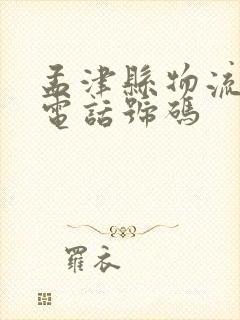 孟津縣物流
電話號碼
羅衣